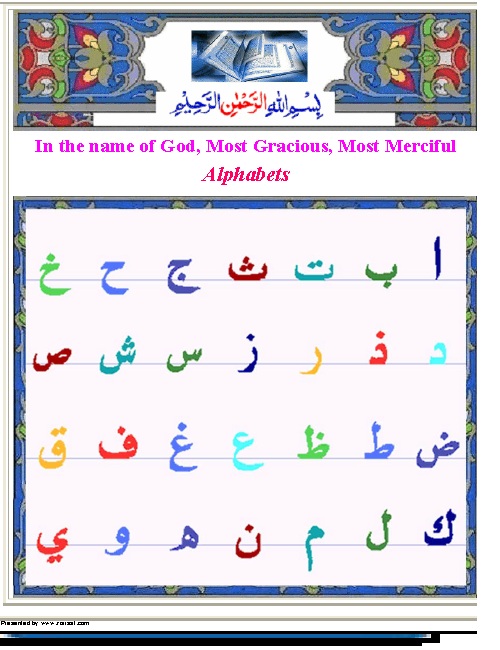 بسم الله الرحمن الرحيم
In the name of God, Most Gracious, Most Merciful
Alphabets
ا ب ت ث ج ح خ
د ذ ر ز س ش ص
ض ط ظ ع غ ف ق
ك ل م ن ه و ي
Presented by www.